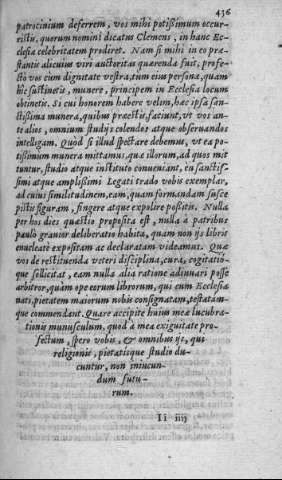 436
patrocinium deferrem, vos mihi potißimum occur-
ristis, quorum nomini dicatus Clemens, in hanc Ec-
clesia celebritatem prodiret. Nam si mihi in eo præ-
stantis alicuius viri auctoritas quærenda fuit, profe-
ctò vos cùm dignitate vestra, tum eius persona, quam
hic sustinetis, munere, principem in Ecclesia locum
obtinetis. Si cui honorem habere velim, hæc ipsa san-
ctißima munera, quibus præestis, faciunt, vt vos an-
te alios, omnium studijs colendos atque obseruandos
intelligam. Quòd si illud spectare debemus, vt ea po-
tißimùm munera mittamus, quæ illorum, ad quos mit
tuntur, studio atque instituto conueniant, en sanctis-
simi atque amplißimi Legati trado vobis exemplar,
ad cuius similitudinem, eam, quam formandam susce
pistis figuram, fingere atque expolire poßitis. Nulla
per hos dies quæstio proposita est, nulla à patribus
paulò grauior deliberatio habita, quam non ijs libris
enucleatè expositam ac declaratam videamus. Quæ
vos de restituenda veteri disciplina, cura, cogitatio-
que sollicitat, eam nulla alia ratione adiuuari posse
arbitror, quàm ope eorum librorum, qui cùm Ecclesiæ
nati, pietatem maiorum nobis consignatam, testatam-
que commendant. Quare accipite huius meæ lucubra-
tionis munusculum, quod à mea exiguitate pro-
fectum, spero vobis, & omnibus ijs, qui
religionis, pietatisque studio du-
cuntur, non iniucun-
dum futu-
rum.
Ii iiij